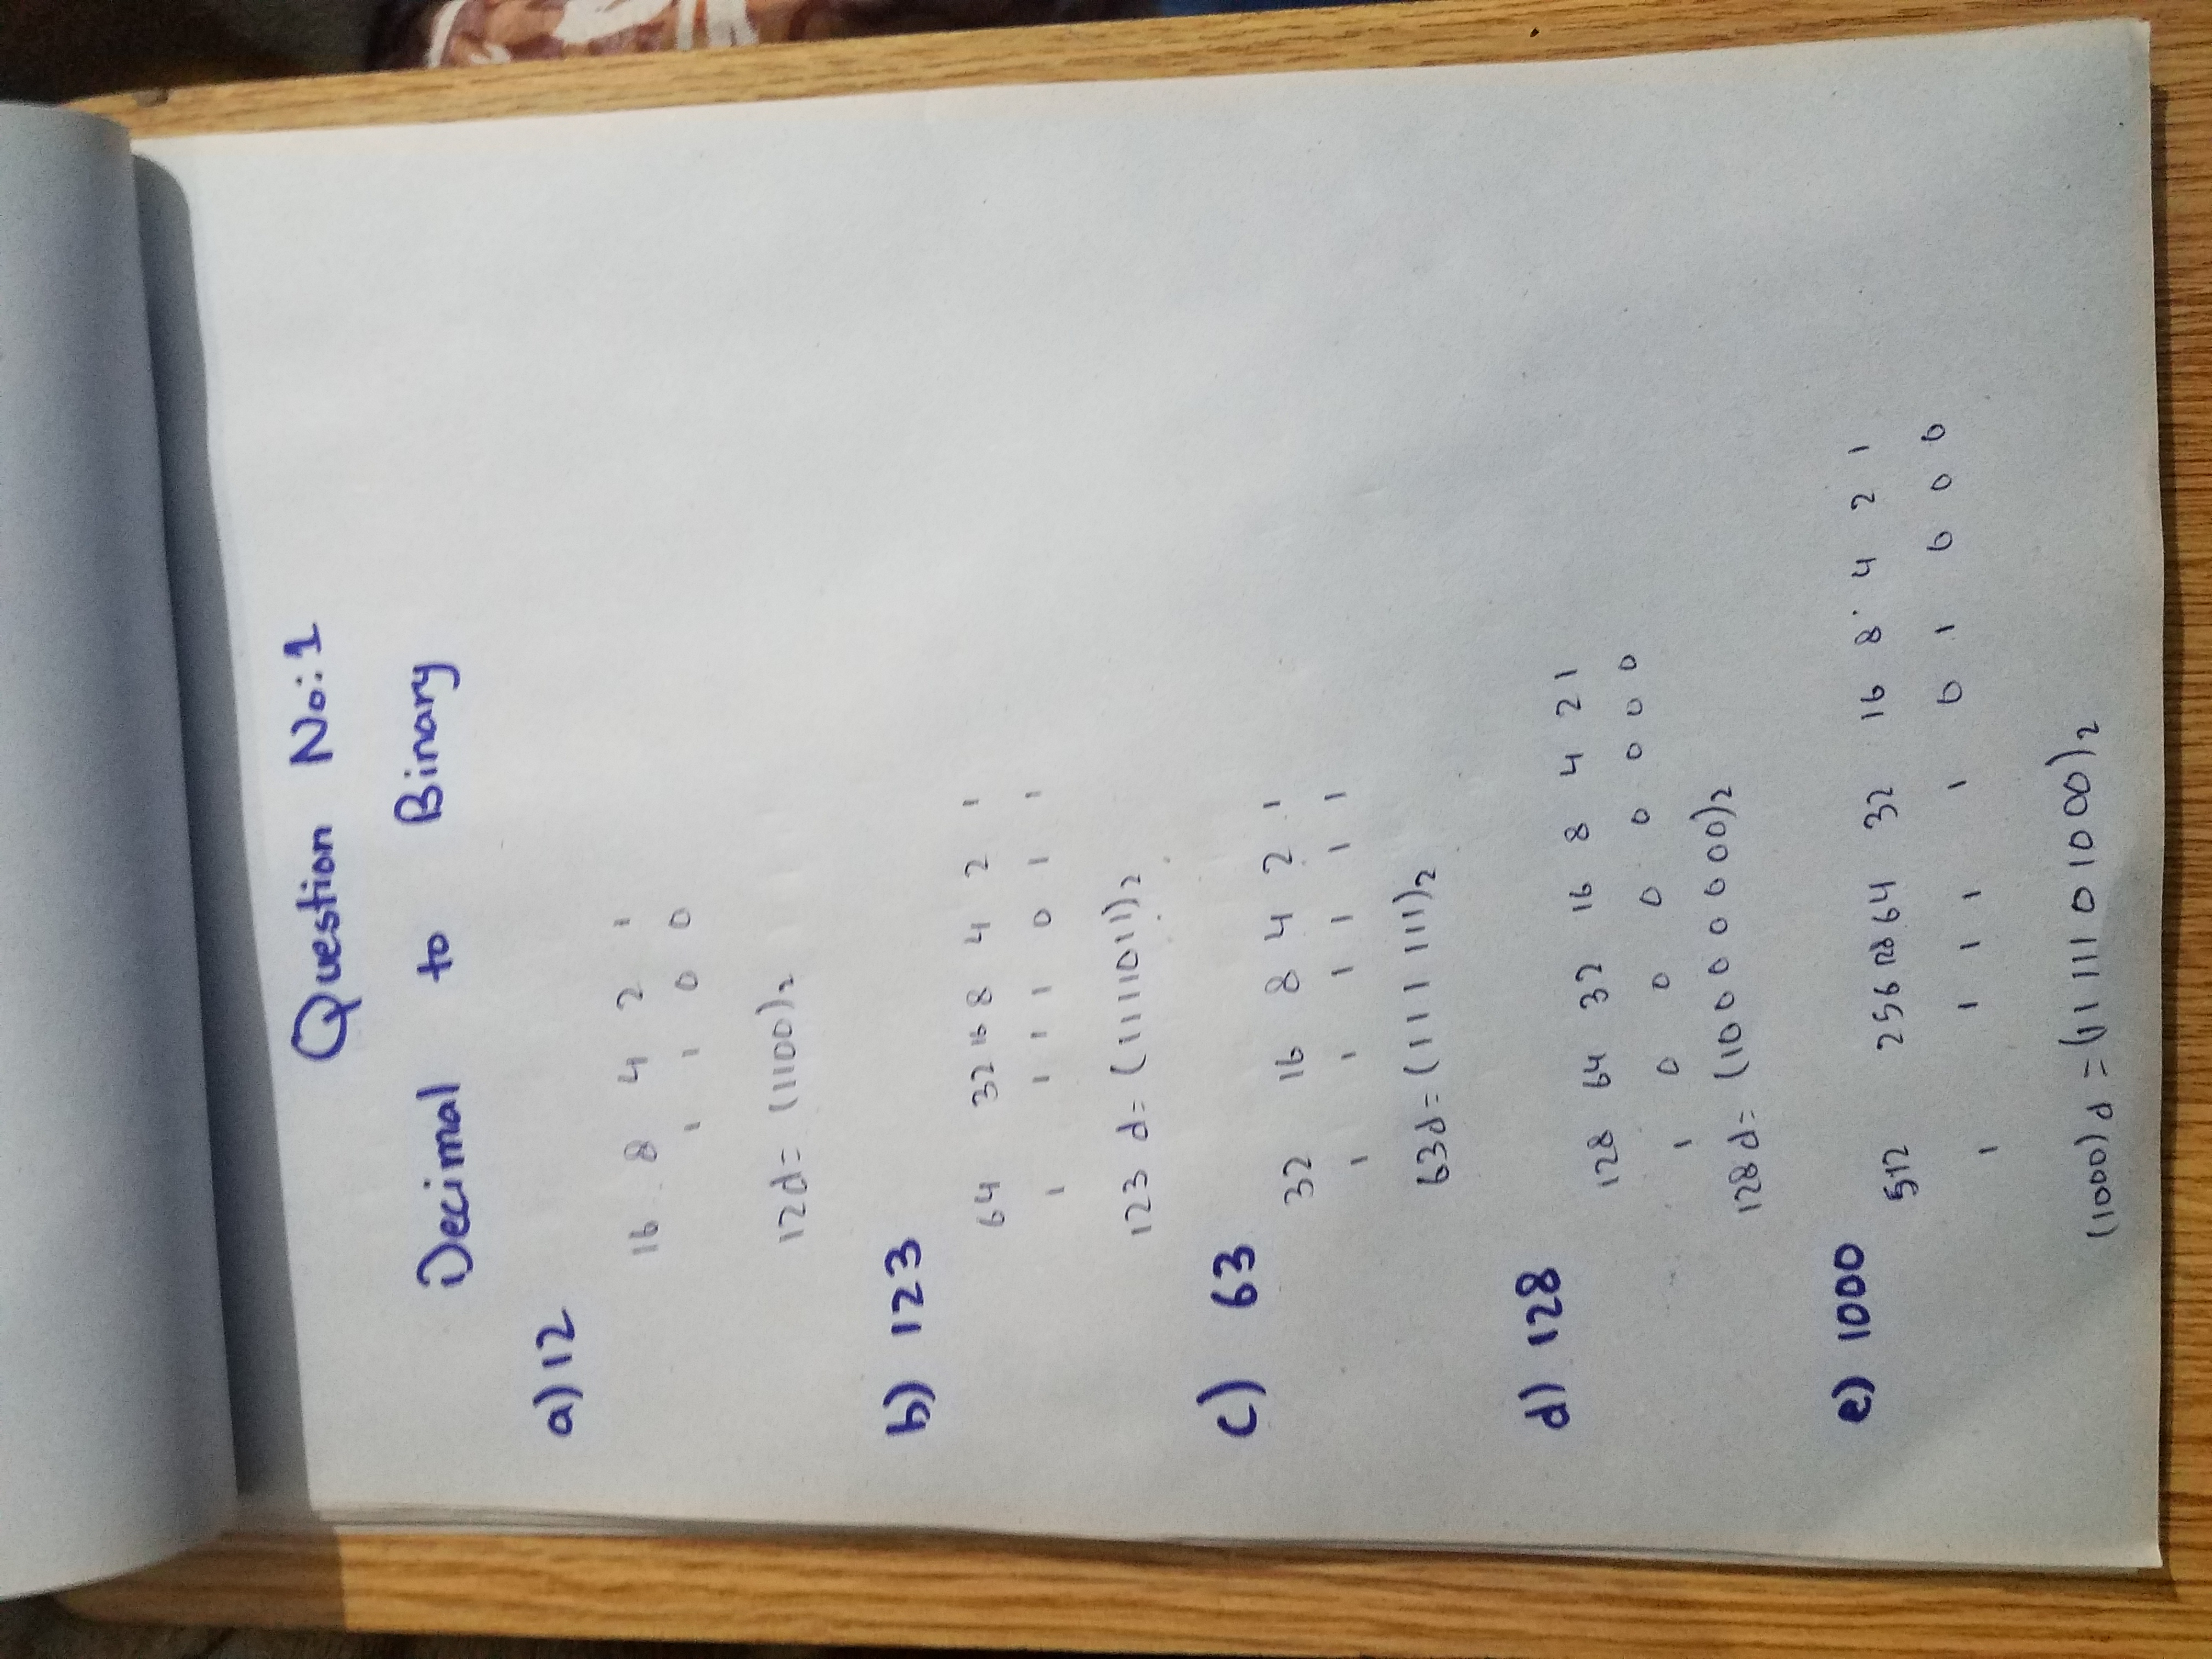 Question No:1
Decimal to Binary
a) 12
16 8 4 2 1
1 1 0 0
12d= (1100)2
b) 123
64 32 16 8 4 2 1
1 1 1 1 0 1 1
123 d= (1111011)2
c) 63
32 16 8 4 2 1
1 1 1 1 1 1
63d= (111 111)2
d) 128
128 64 32 16 8 4 2 1
1 0 0 0 0 0 0 0
128d= (10000000)2
e) 1000
512 256 128 64 32 16 8 4 2 1
1 1 1 1 1 0 1 0 0 0
(1000)d = (1111101000)2